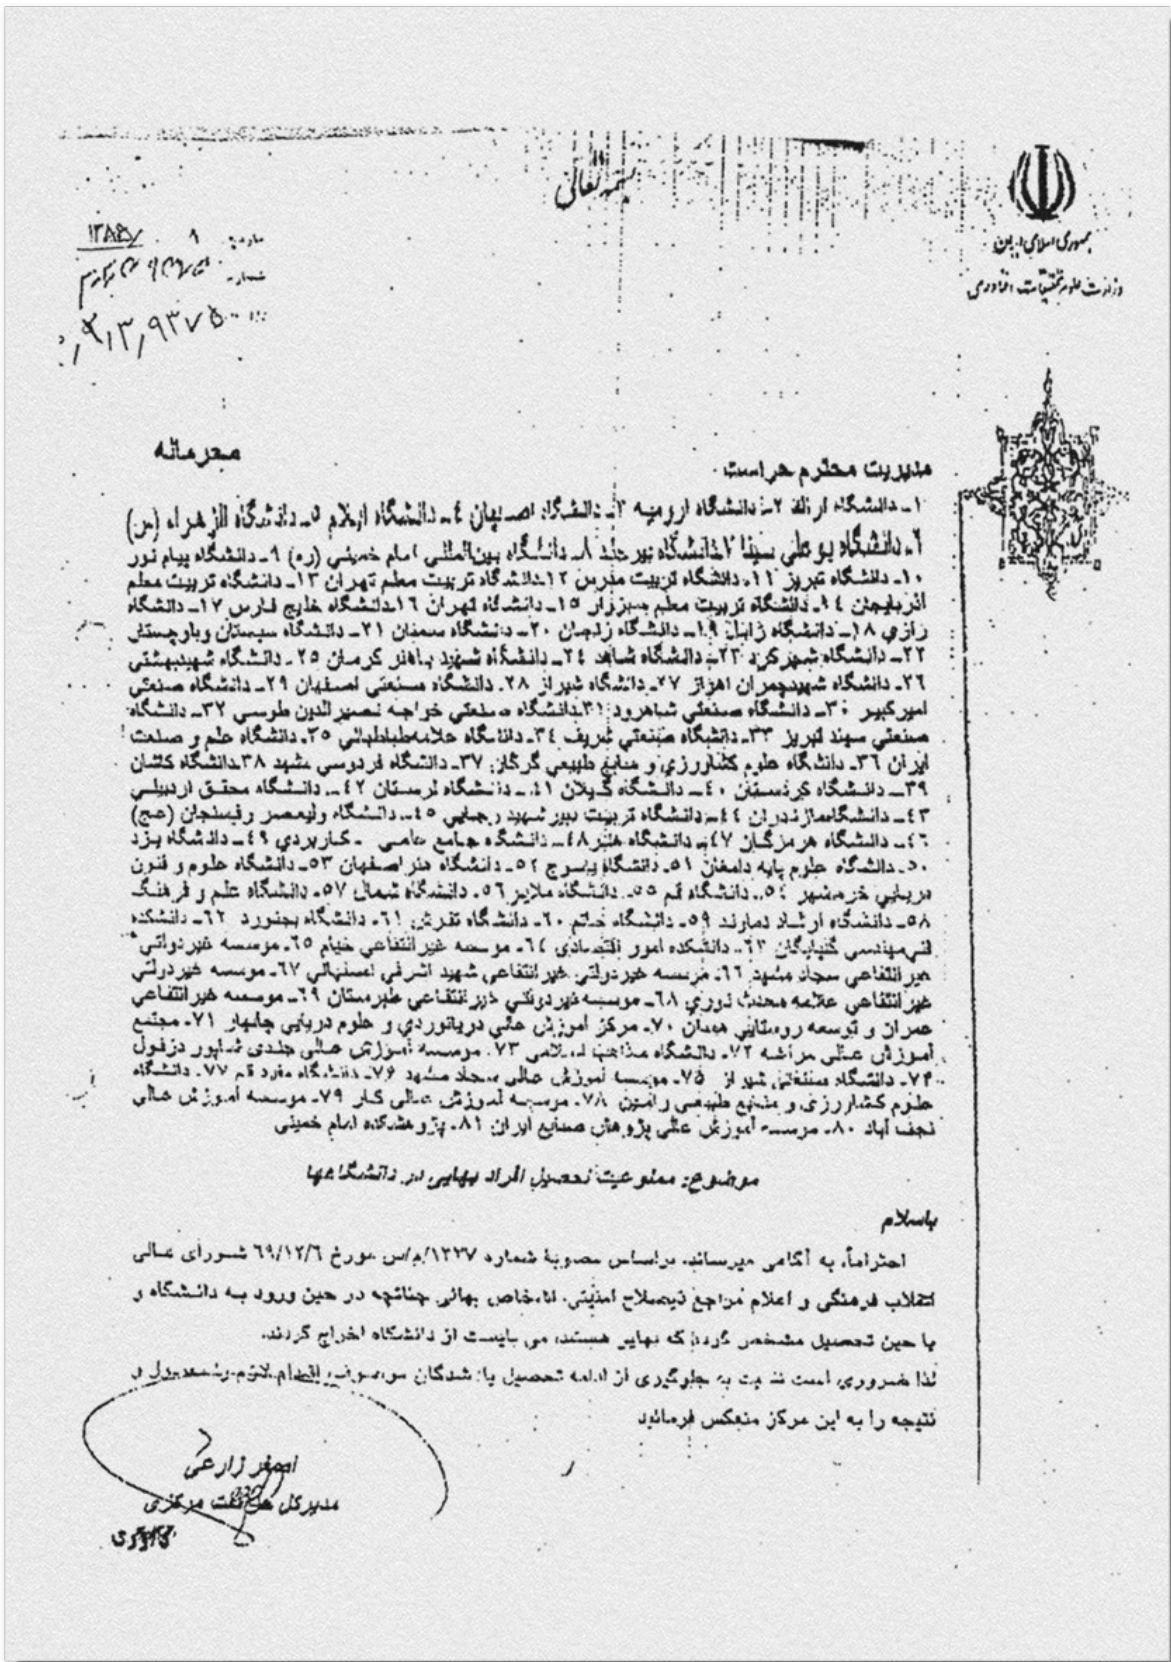 بسمه تعالی
جمهوری اسلامی ایران
وزارت علوم تحقیقات و فناوری
تاریخ ۱۳۸۵/ ۹
شماره
محرمانه
مدیریت محترم حراست
۱ـ دانشگاه اراک ۲ـ دانشگاه ارومیه ۳ـ دانشگاه اصفهان ۴ـ دانشگاه ایلام ۵ـ دانشگاه الزهراء (س)
۶ـ دانشگاه بوعلی سینا ۷ـدانشگاه بیرجند ۸ـ دانشگاه بین‌المللی امام خمینی (ره) ۹ـ دانشگاه پیام نور
۱۰ـ دانشگاه تبریز ۱۱ـ دانشگاه تربیت مدرس ۱۲ـدانشگاه تربیت معلم تهران ۱۳ـ دانشگاه تربیت معلم
آذربایجان ۱۴ـ دانشگاه تربیت معلم سبزوار ۱۵ـ دانشگاه تهران ۱۶ـدانشگاه خلیج فارس ۱۷ـ دانشگاه
رازی ۱۸ـ دانشگاه زابل ۱۹ـ دانشگاه زنجان ۲۰ـ دانشگاه سمنان ۲۱ـ دانشگاه سیستان وبلوچستان
۲۲ـ دانشگاه شهرکرد ۲۳ـ دانشگاه شاهد ۲۴ـ دانشگاه شهید باهنر کرمان ۲۵ـ دانشگاه شهیدبهشتی
۲۶ـ دانشگاه شهیدچمران اهواز ۲۷ـ دانشگاه شیراز ۲۸ـ دانشگاه صنعتی اصفهان ۲۹ـ دانشگاه صنعتی
امیرکبیر ۳۰ـ دانشگاه صنعتی شاهرود ۳۱ـدانشگاه صنعتی خواجه نصیرالدین طوسی ۳۲ـ دانشگاه
صنعتی سهند تبریز ۳۳ـ دانشگاه صنعتی شریف ۳۴ـ دانشگاه علامه‌طباطبائی ۳۵ـ دانشگاه علم و صنعت
ایران ۳۶ـ دانشگاه علوم کشاورزی و منابع طبیعی گرگان ۳۷ـ دانشگاه فردوسی مشهد ۳۸ـدانشگاه کاشان
۳۹ـ دانشگاه کردستان ۴۰ـ دانشگاه گیلان ۴۱ـ دانشگاه لرستان ۴۲ـ دانشگاه محقق اردبیلی
۴۳ـ دانشگاه‌مازندران ۴۴ـ دانشگاه تربیت دبیر شهید رجایی ۴۵ـ دانشگاه ولیعصر رفسنجان (عج)
۴۶ـ دانشگاه هرمزگان ۴۷ـ دانشگاه هنر ۴۸ـ دانشگاه جامع علمی ـ کاربردی ۴۹ـ دانشگاه یزد
۵۰ـ دانشگاه علوم پایه دامغان ۵۱ـ دانشگاه یاسوج ۵۲ـ دانشگاه هنر اصفهان ۵۳ـ دانشگاه علوم و فنون
دریایی خرمشهر ۵۴ـ دانشگاه قم ۵۵ـ دانشگاه ملایر ۵۶ـ دانشگاه شمال ۵۷ـ دانشگاه علم و فرهنگ
۵۸ـ دانشگاه ارشاد دماوند ۵۹ـ دانشگاه خاتم ۶۰ـ دانشگاه تفرش ۶۱ـ دانشگاه بجنورد ۶۲ـ دانشکده
فنی‌مهندسی گلپایگان ۶۳ـ دانشکده امور اقتصادی ۶۴ـ موسسه غیرانتفاعی خیام ۶۵ـ موسسه غیردولتی
غیرانتفاعی سجاد مشهد ۶۶ـ موسسه غیردولتی غیرانتفاعی شهید اشرفی اصفهانی ۶۷ـ موسسه غیردولتی
غیرانتفاعی علامه محدث نوری ۶۸ـ موسسه غیردولتی غیرانتفاعی طبرستان ۶۹ـ موسسه غیرانتفاعی
عمران و توسعه روستایی همدان ۷۰ـ مرکز آموزش عالی دریانوردی و علوم دریایی چابهار ۷۱ـ مجتمع
آموزش عالی مراغه ۷۲ـ دانشگاه مذاهب اسلامی ۷۳ـ موسسه آموزش عالی جندی شاپور دزفول
۷۴ـ دانشگاه صنعتی شیراز ۷۵ـ موسسه آموزش عالی سجاد مشهد ۷۶ـ دانشگاه مفید قم ۷۷ـ دانشگاه
علوم کشاورزی و منابع طبیعی رامین ۷۸ـ موسسه آموزش عالی کار ۷۹ـ موسسه آموزش عالی
نجف آباد ۸۰ـ موسسه آموزش عالی پژوهش صنایع ایران ۸۱ـ پژوهشکده امام خمینی
موضوع: ممنوعیت تحصیل افراد بهایی در دانشگاهها
باسلام
احتراماً، به آگاهی میرساند، براساس مصوبۀ شماره ۱۳۲۷/م/س مورخ ۶۹/۱۲/۶ شورای عالی
انقلاب فرهنگی و اعلام مراجع ذیصلاح امنیتی، اشخاص بهائی چنانچه در حین ورود به دانشگاه و
یا حین تحصیل مشخص گردد که بهایی هستند، می بایست از دانشگاه اخراج گردند.
لذا ضروری است نسبت به جلوگیری از ادامه تحصیل یاد شدگان موصوف، اقدام لازم معمول و
نتیجه را به این مرکز منعکس فرمائید
اصغر زارعی
مدیرکل حراست مرکزی